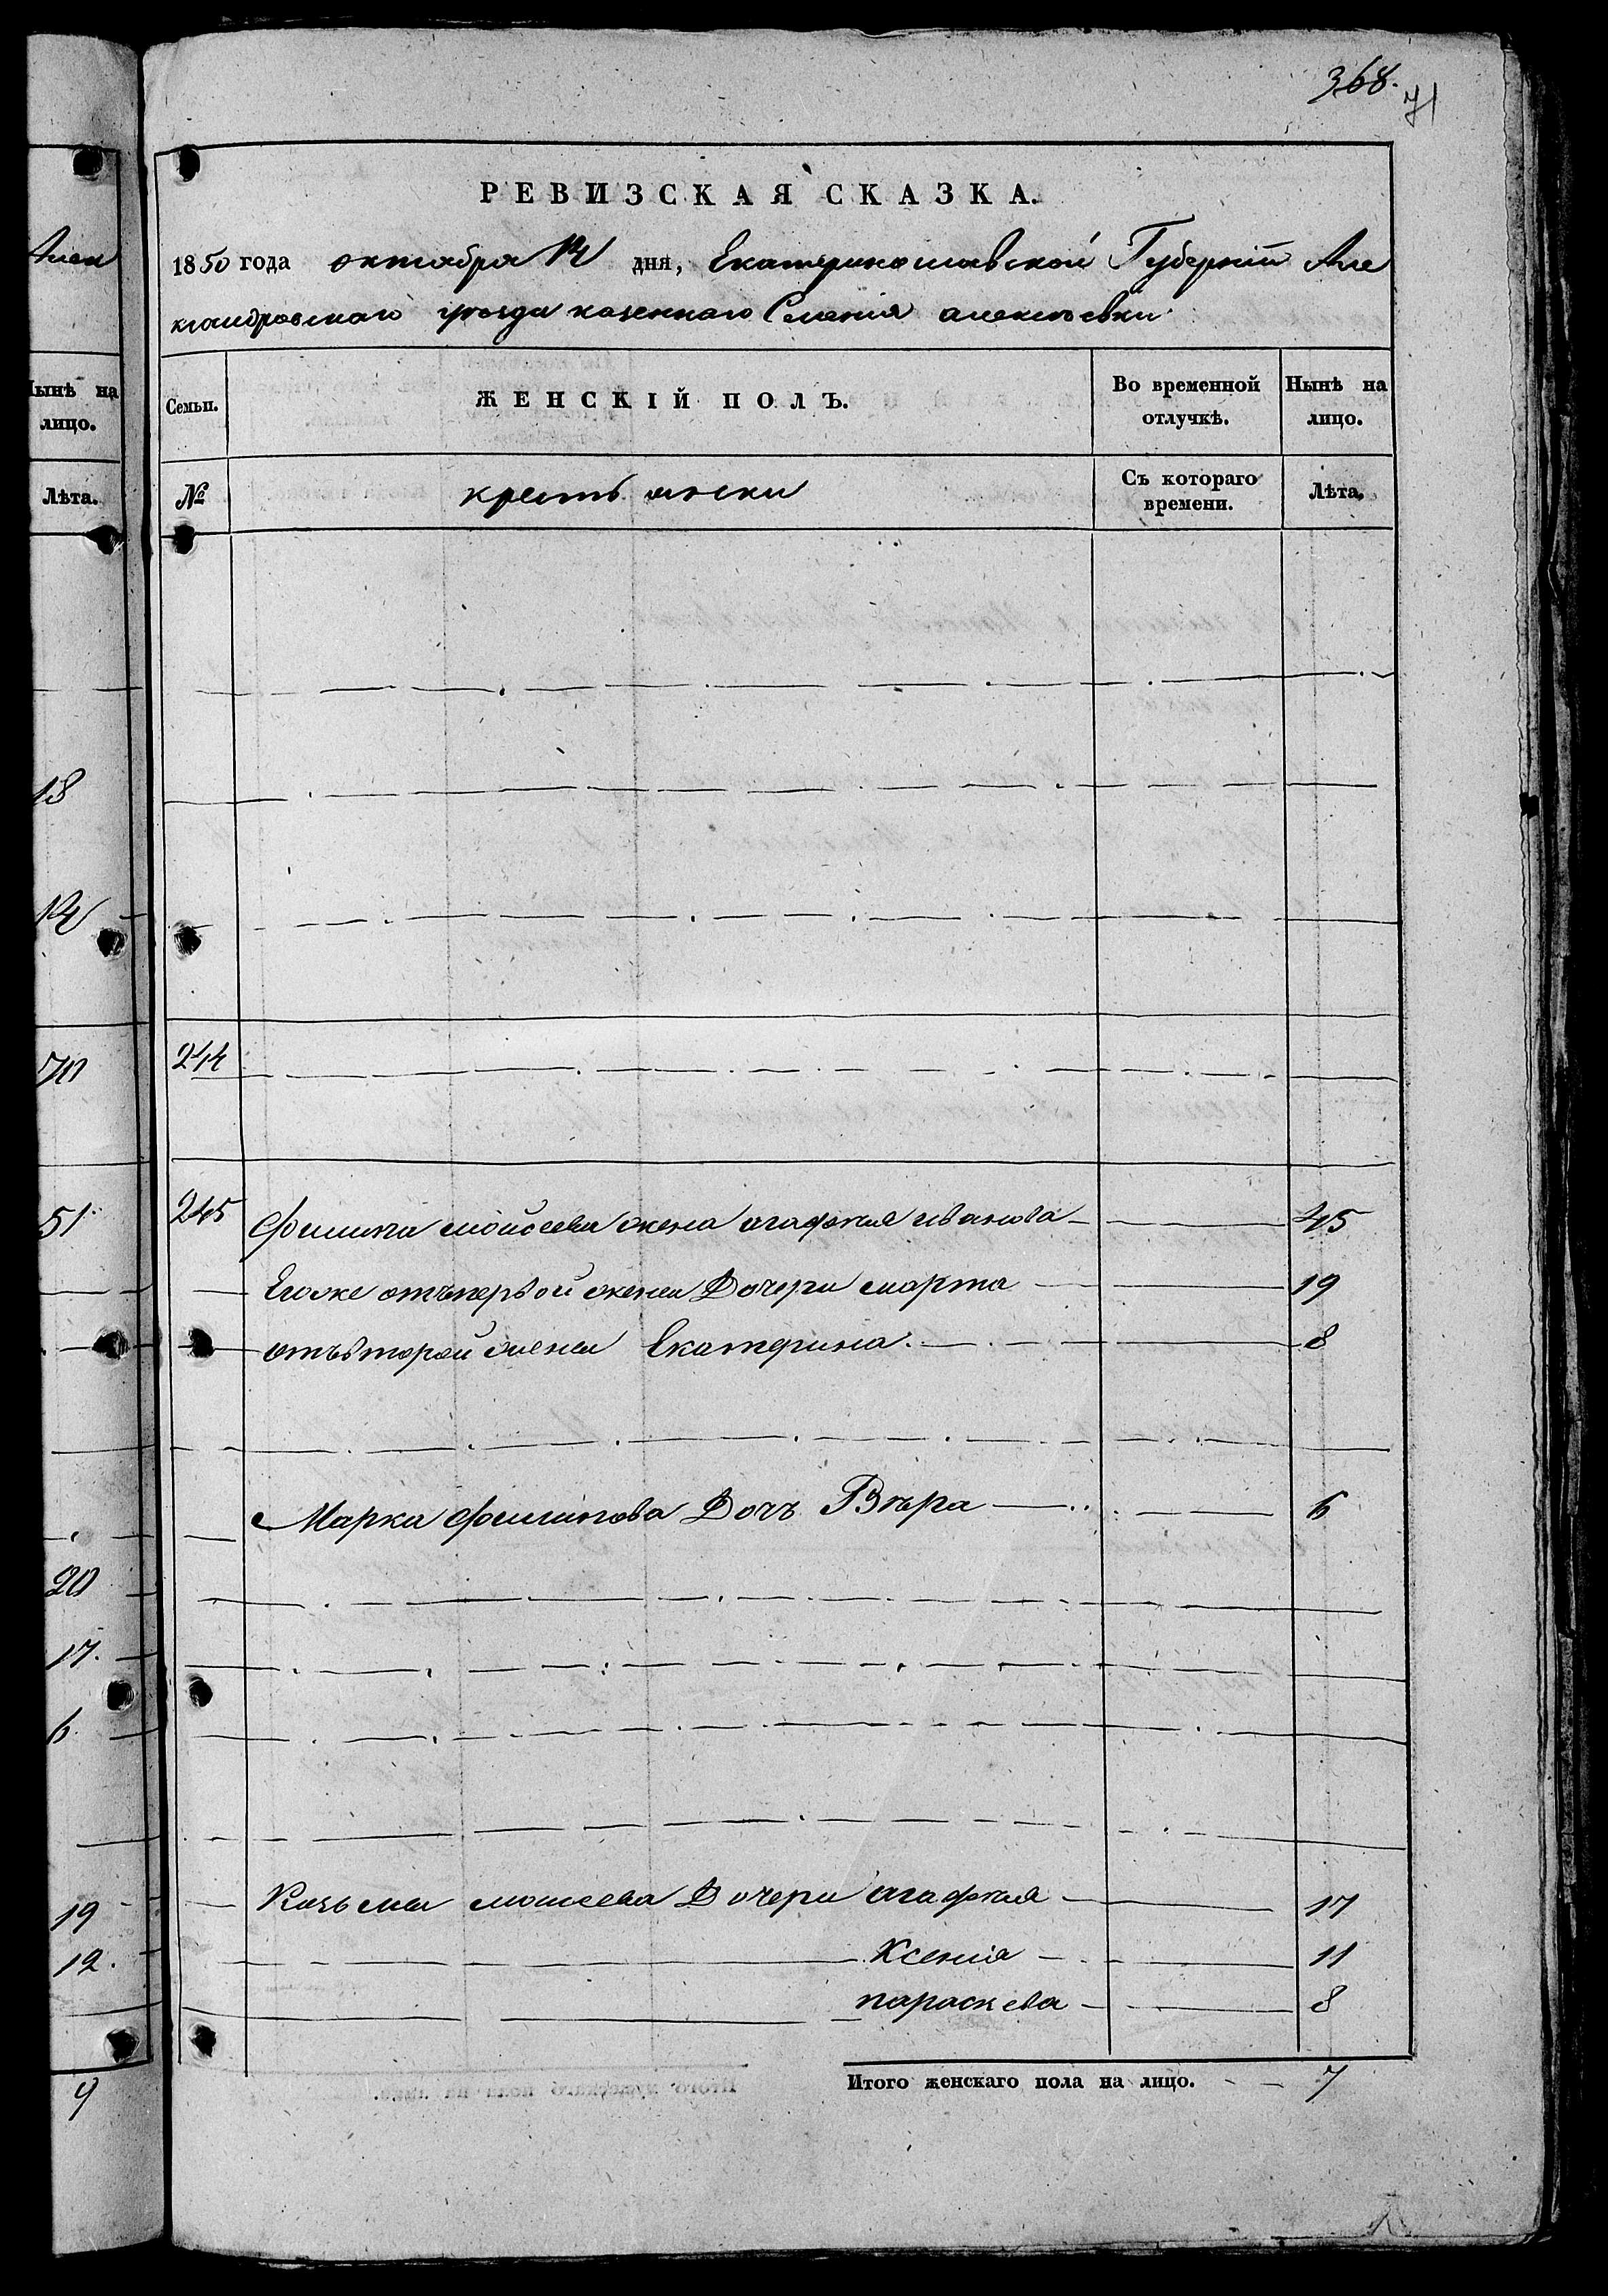 368.
71
РЕВИЗСКАЯ СКАЗКА.
1850 года октября 14 дня, Екатеринославской Губернiи Але
ксандровскаго уезда казеннаго Селенiя алексѣевки
Семьи. ЖЕНСКIЙ ПОЛЪ. Во временной отлучкѣ. Нынѣ на лицо.
№ крестьянски Съ котораго времени. Лѣта.
244
245 Филипа моисеева жена агафия иванова 45
Егоже отъпервой жены Дочери марта 19
отъвторой жены Екатерина. 8
Марка Филипова Дочъ Вѣра 6
Козьмы моисеева Дочери агафия 17
Ксенiя 11
параскева 8
Итого женскаго пола на лицо. 7
Нынѣ на
лицо.
Лѣта.
18
14
70
51
20
17.
6.
19
12.
9